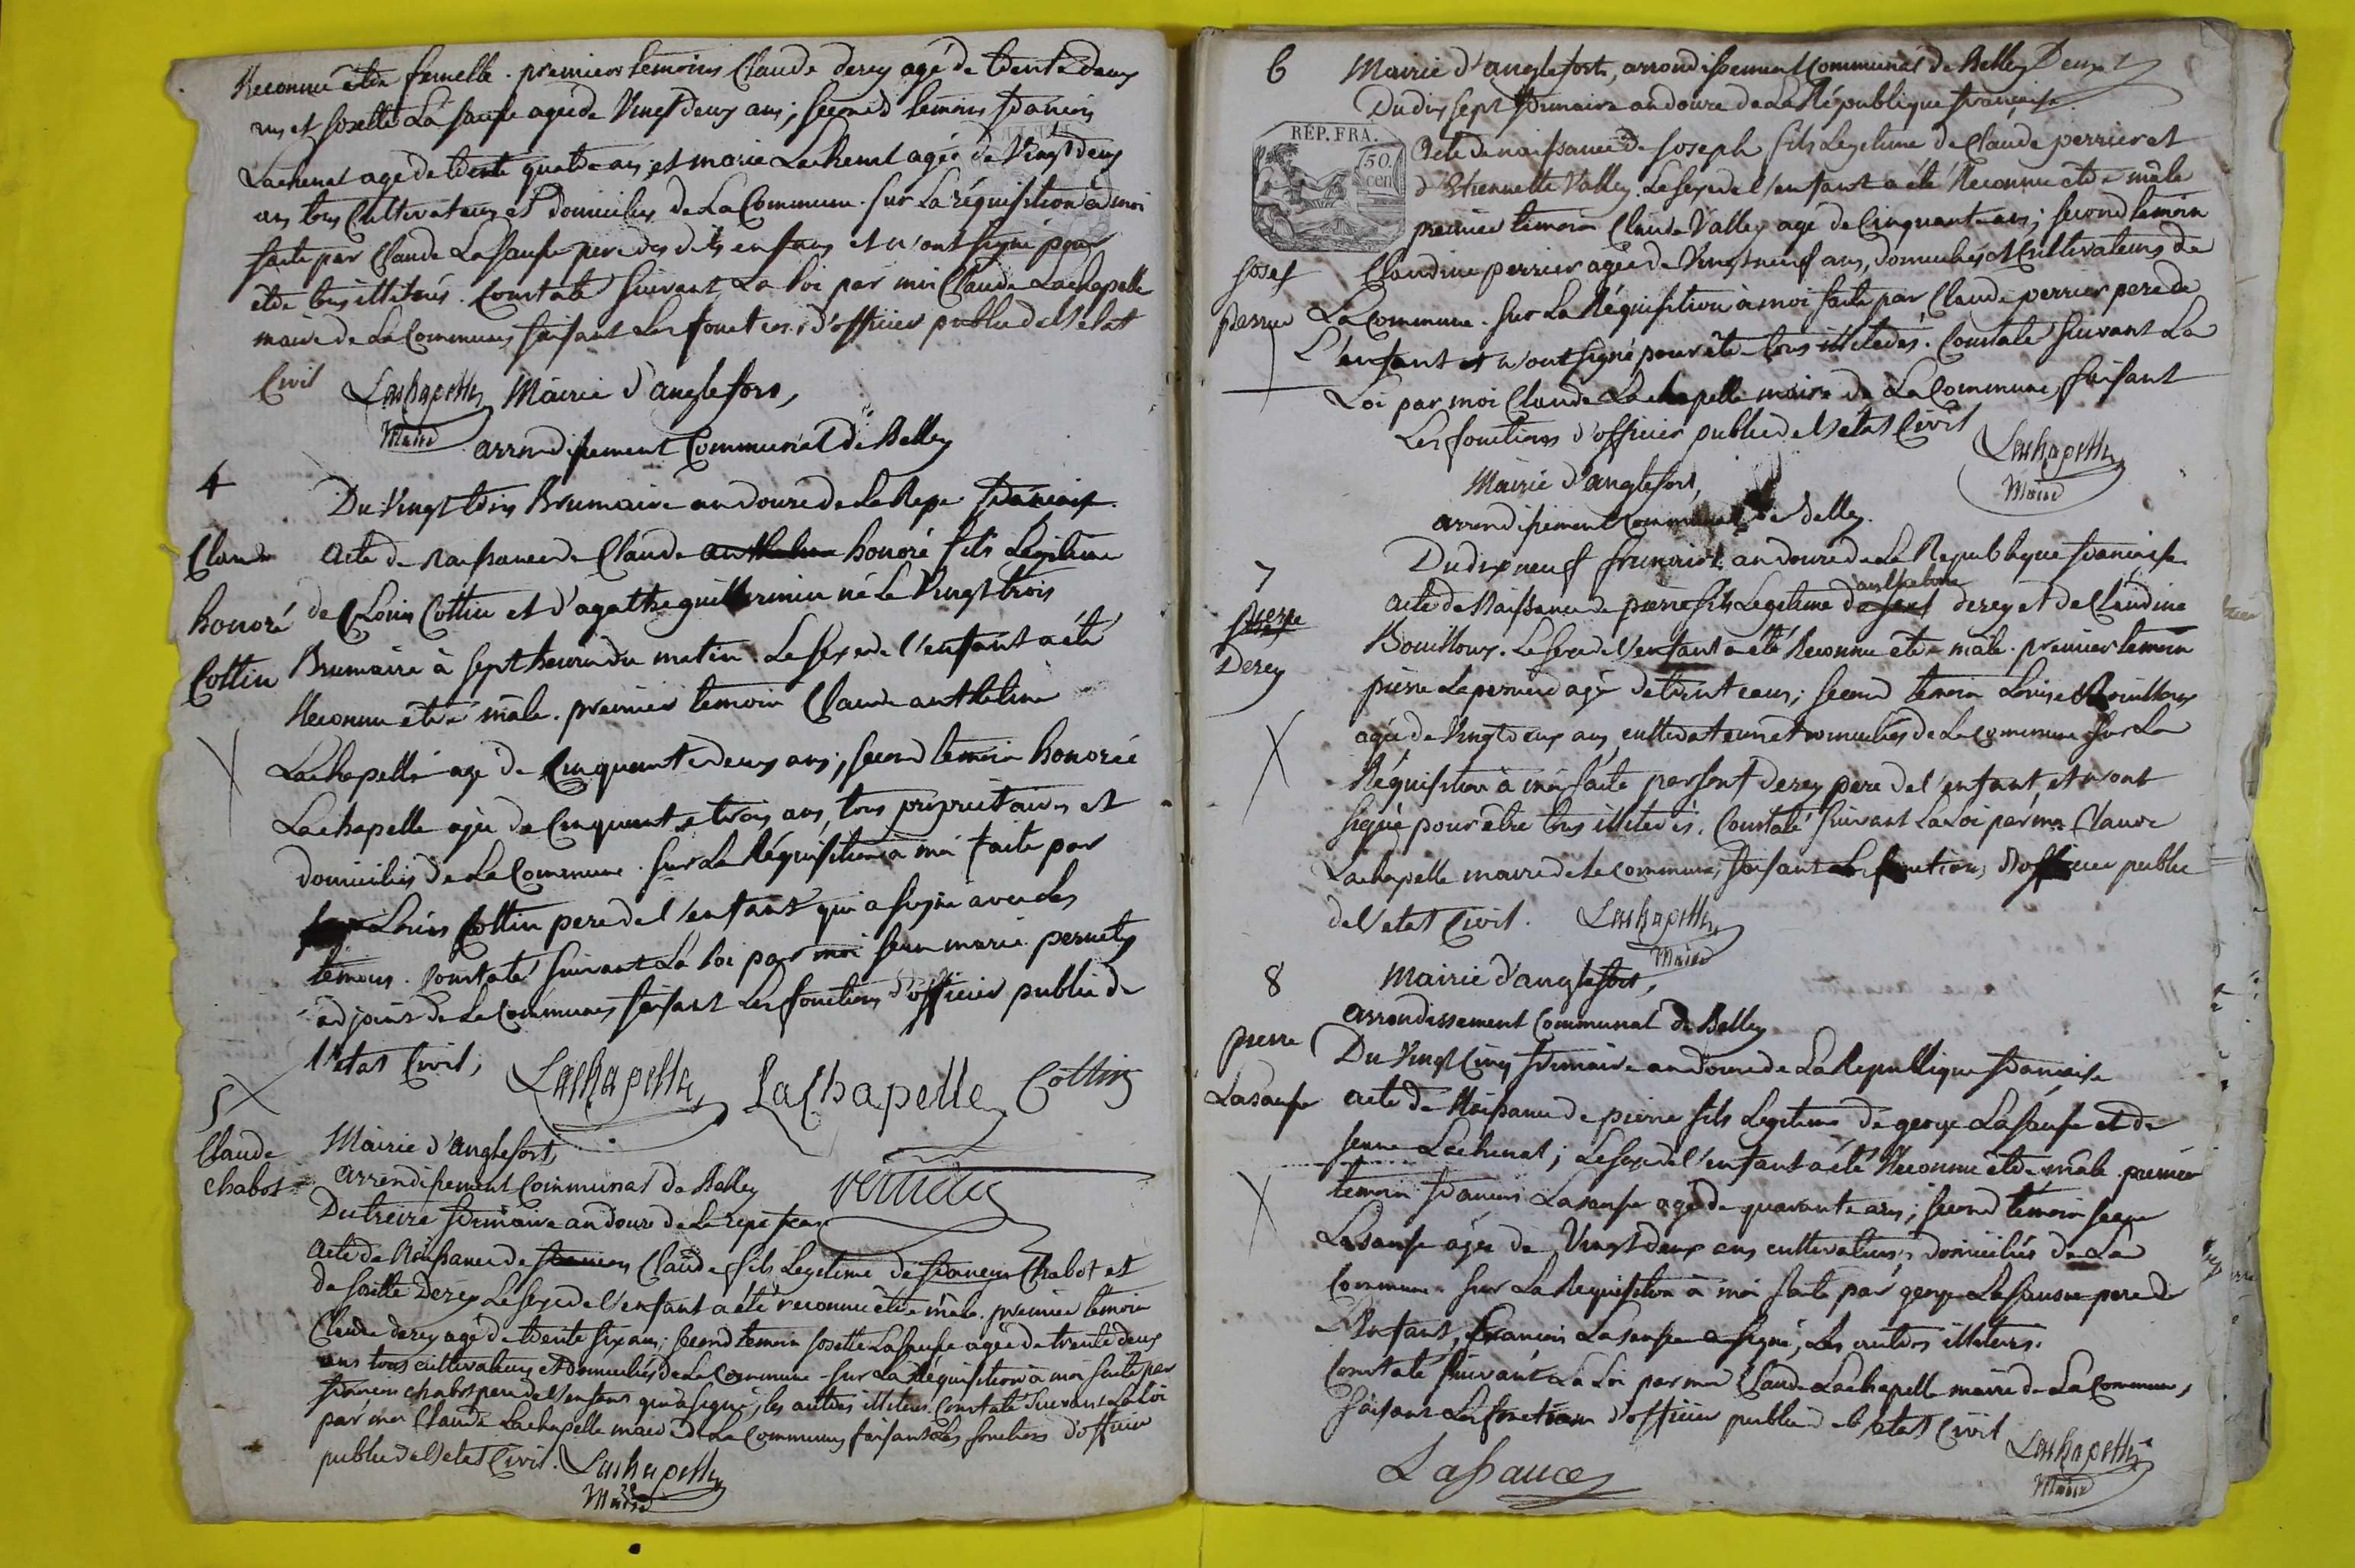 Reconnu être femelle. premier temoins Claude derey agé de trente deux
ans et Josette La sausse agée de Vingt deux ans; second temoins françois
Lachenal agé de trente quatre ans et marie Lachenal agée de Vingt deux
ans tous Cultivateurs et domiciliés de La Commune. sur La réquisition à moi
faite par Claude La sausse pere des dits enfans et n'ont signé pour
être tous illiterés. Constaté suivant La loi par moi Claude Lachapelle
maire de La Commune, faisant Les fonctions d'officier public de l'etat
Civil
Lachapelle
Maire
Mairie d'anglefort,
arrondissement Communal de Belley
4
Du Vingt trois Brumaire an douze de La Repe française.
Claude
honoré
Cottin
acte de Naissance de Claude anthelme honoré fils Legitime
de Louis Cottin et d'agathe guillerminin né Le Vingt trois
Brumaire à sept heures du matin. Le sexe de l'enfant a été
Reconnu être mâle. premier temoin Claude anthelme
Lachapelle agé de Cinquante deux ans; second temoin honorée
Lachapelle agée de Cinquante trois ans, tous proprietaires et
domiciliés de La Commune. sur La Réquisition à moi faite par
Louis Cottin pere de l'enfant qui a signé avec les
temoins. Constaté suivant La loi par moi jean marie pernety
adjoint de La Commune, faisant Les fonctions d'officier public de
l'etat Civil;
Lachapelle LaChapelle Cottin
5
Claude
chabot
Mairie d'anglefort,
arrondissement Communal de Belley
Du treize frimaire an douze de La repe fran
acte de Naissance de francois Claude fils Legitime de françois Chabot et
de Josette Derey Le sexe de l'enfant a été reconnu être mâle. premier temoin
Claude derey agé de trente six ans; second temoin Josette La sausse agée de trente deux
ans tous cultivateurs et domiciliés de La Commune. sur La Réquisition à moi faite par
françois chabot pere de l'enfant qui a signé, les autres illiterés. Constaté suivant La loi
par moi Claude Lachapelle maire de La Commune, faisant Les fonctions d'officier
public de l'etat Civil.
Lachapelle
Maire
6
Mairie d'anglefort, arrondissement Communal de Belley
Du dix sept frimaire an douze de La République française
RÉP. FRA.
50.
cen
Josef
perrier
acte de naissance de Joseph fils Legitime de Claude perrier et
d'Etiennette Valley. Le sexe de l'enfant a été Reconnu être mâle
premier temoin Claude Valley agé de Cinquante ans; second temoin
Claudine perrier agée de Vingt neuf ans, domiciliés et Cultivateurs de
La Commune. sur La Réquisition à moi faite par Claude perrier pere de
L'enfant et n'ont signé pour être tous illiterés. Constaté suivant La
Loi par moi Claude Lachapelle maire de La Commune, faisant
Les fonctions d'officier public de l'etat Civil
Lachapelle
Maire
Mairie d'anglefort,
arrondissement Communal de Belley.
7
Du dix neuf frimaire, an douze de La Republique française
pierre
Derey
anthelme
acte de Naissance de pierre fils Legitime de derey et de Claudine
Bouilloux. Le sexe de l'enfant a été Reconnu être mâle. premier temoin
pierre agé de trente ans; second temoin Louise Bouilloux
agée de Vingt deux ans, cultivateurs et domiciliés de La Commune sur La
Réquisition à moi faite par derey pere de l'enfant, et n'ont
signé pour être tous illiterés. Constaté suivant La Loi par moi Claude
Lachapelle maire de La Commune, faisant Les fonctions d'officier public
de l'etat Civil.
Lachapelle
Maire
8
Mairie d'anglefort,
arrondissement Communal de Belley
pierre
Lasausse
Du Vingt Cinq frimaire an douze de La Republique française
acte de Naissance de pierre fils Legitime de george La sausse et de
Jenne Lachenal; Le sexe de l'enfant a été Reconnu être mâle. premier
temoin françois Lasausse agé de quarante ans; second temoin
Lasausse agée de Vingt deux ans cultivateurs, domiciliés de La
Commune. sur La Requisition à moi faite par george La sausse pere de
L'enfant, francois Lasausse a signé, Les autres illiterés.
Constaté suivant La Loi par moi Claude Lachapelle maire de La Commune,
faisant Les fonctions d'officier public de l'etat Civil
Lachapelle
Maire
Lasauce